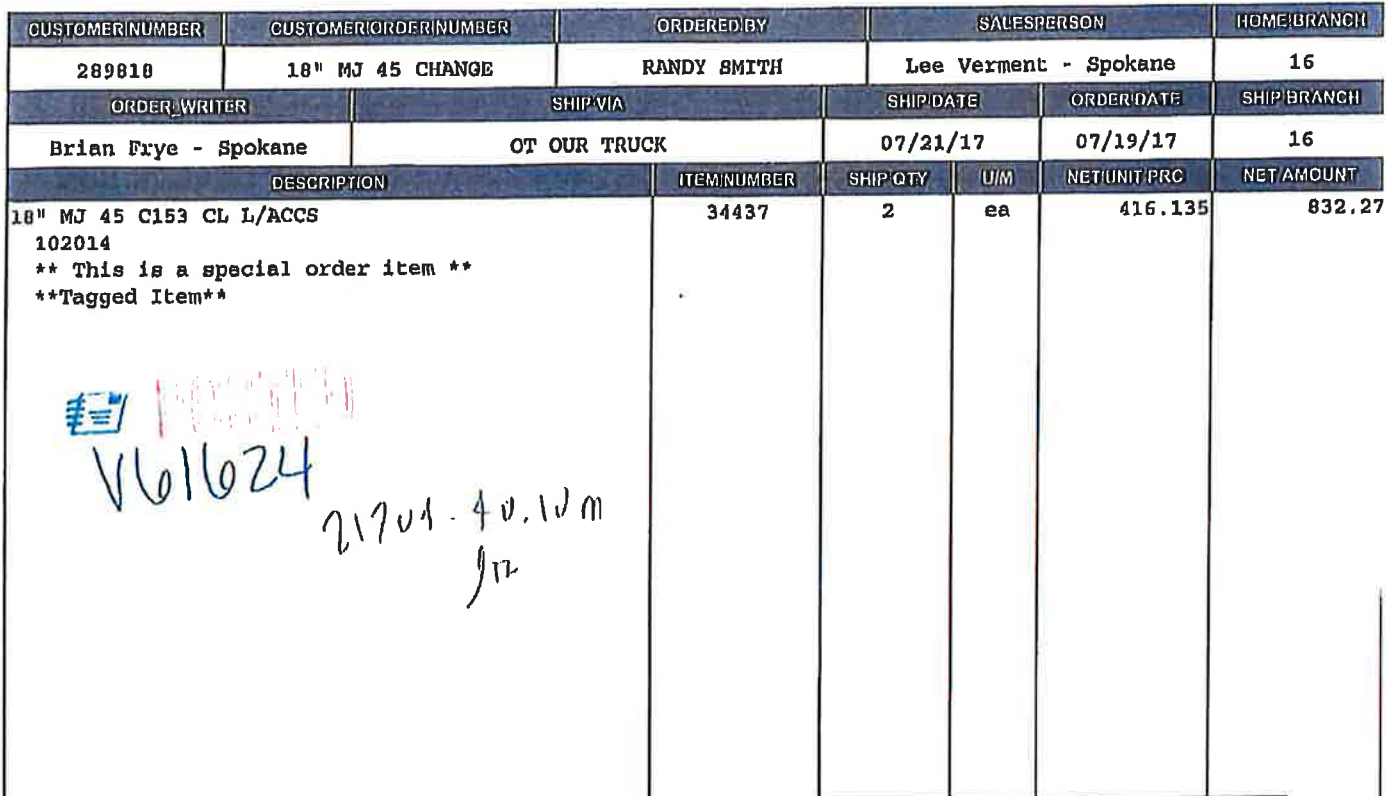 CUSTOMER NUMBER CUSTOMER ORDER NUMBER ORDERED BY SALESPERSON HOME BRANCH
289818 18" MJ 45 CHANGE RANDY SMITH Lee Verment - Spokane 16
ORDER WRITER SHIP VIA SHIP DATE ORDER DATE SHIP BRANCH
Brian Frye - Spokane OT OUR TRUCK 07/21/17 07/19/17 16
DESCRIPTION ITEM NUMBER SHIP QTY U/M NET UNIT PRC NET AMOUNT
18" MJ 45 C153 CL L/ACCS 34437 2 ea 416.135 832.27
102014
** This is a special order item **
**Tagged Item**
V61624